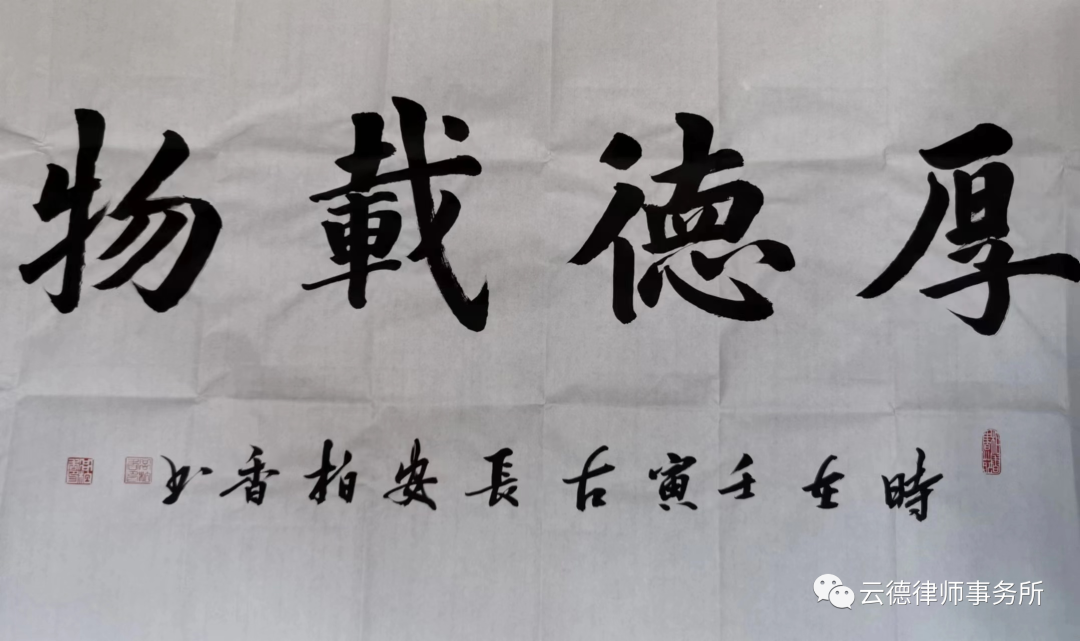 厚德載物
時在壬寅古長安柏香书
云德律师事务所